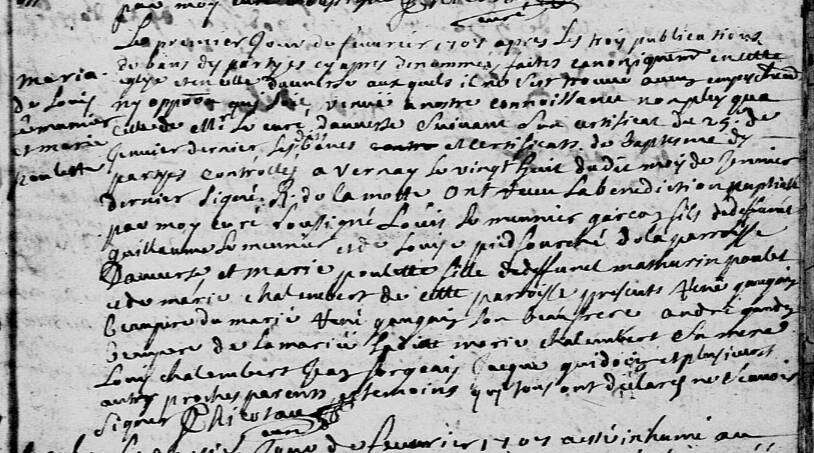 par moy curé
curé
Le premier Jour de feuvrier 1707 apres les trois publications
de bans des partyes cy apres denommes, faites canoniquement en cette
eglise et en celle dauuerse auxquels il ne sest trouué aucun empeschement
ny opposon quy soit venüe a nostre connoissance non plus qua
celle de Mr le curé dauuerse suiuant son certificat du 25e de
Jenuier dernier les bans et certificats de Baptesme des
partyes controllés a Vernay le vingt huit dudit moy de Jenuier
dernier signé R. de la motte ont receu la benediction nuptialle
par moy curé soussigné Louis le meunier garcon fils de deffunt
guillaume le meunier et de Louise piedfourché de la parroisse
Dauuerse et marie poulette fille de deffunct mathurin poulet
et de marie chalembert de cette parroisse presents René gangain
beaupere du marié René gangain son beaufrere andré gandon
beaupere de la mariée marie chalembert sa mere
Louis chalembert Jean Jacque et plusieurs
autres proches parents et temoins quy tous ont declaré ne scauoir
signer
curé
maria
de Louis
le meunier
et marie
poulette
Jour de feuurier 1707 a esté inhumé au